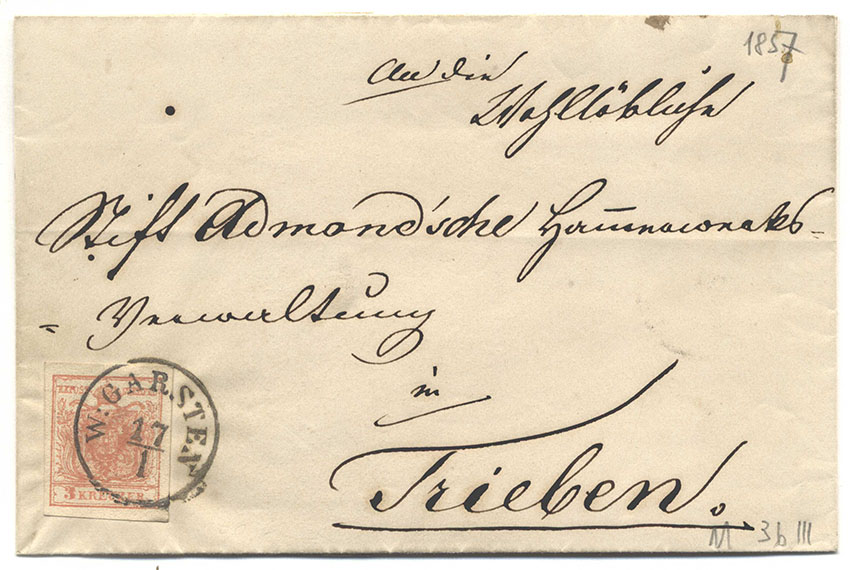 1857
An die
Wohllöbliche
Stift Admond'sche Ham̅erwerks-
= Verwaltung
in
Trieben.
W: GARSTEN
17/1
3 KREUZER
M 3b III